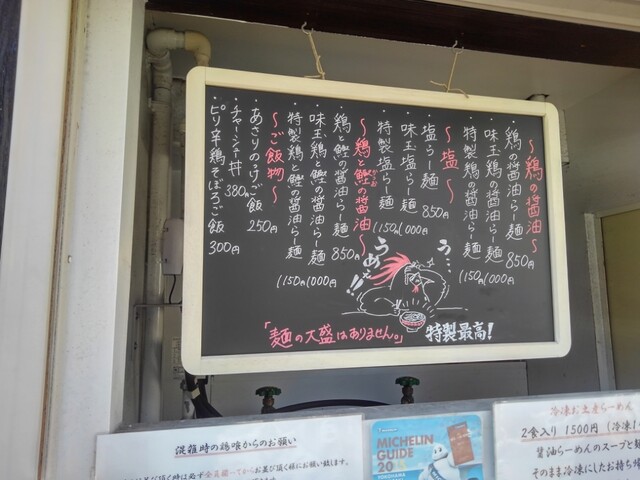 ～鶏の醤油～
・鶏の醤油らー麺 850円
・味玉鶏の醤油らー麺 1000円
・特製鶏の醤油らー麺 1150円
～塩～
・塩らー麺 850円
・味玉塩らー麺 1000円
・特製塩らー麺 1150円
～鶏と鰹の醤油～
かつお
・鶏と鰹の醤油らー麺 850円
・味玉鶏と鰹の醤油らー麺 1000円
・特製鶏と鰹の醤油らー麺 1150円
～ご飯物～
・あさりのっけご飯 250円
・チャーシュー丼 380円
・ピリ辛鶏そぼろご飯 300円
う…
うめぇ!!
「麺の大盛はありません。」
特製最高!
混雑時の鶏喰からのお願い
MICHELIN
GUIDE
20
YOKOHAMA
冷凍お土産らーめん
2食入り 1500円
醤油らーめんのスープと
そのまま冷凍にしたお持ち